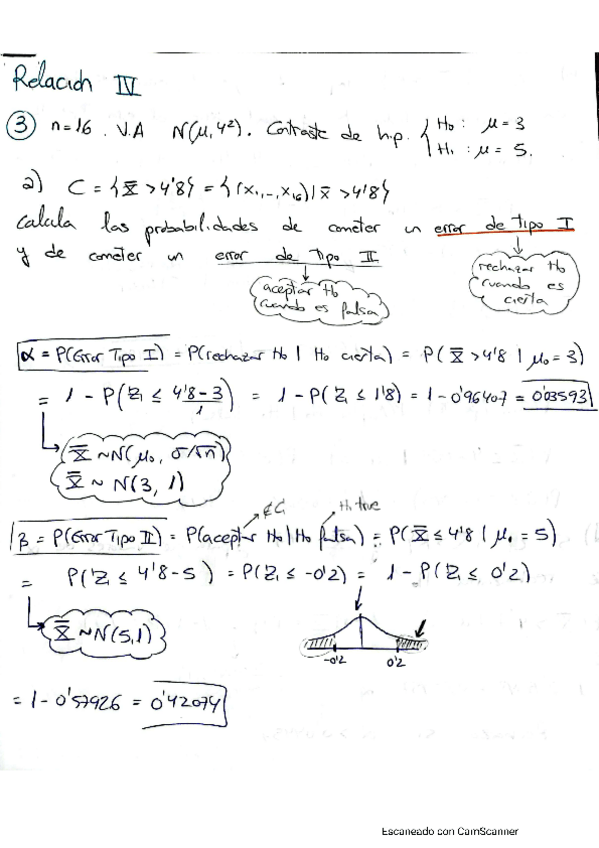 Relación IV
③ n=16. V.A N(μ,4²). Contraste de hip. { H₀: μ=3
H₁: μ=5.
a) C = {X̄ >4'8} = {(x₁,...,x₁₆) | x̄ >4'8}
Calcula las probabilidades de cometer un error de tipo I
y de cometer un error de tipo II
rechazar H₀
cuando es
cierta
aceptar H₀
cuando es falsa
α = P(Error Tipo I) = P(rechazar H₀ | H₀ cierta) = P(X̄ >4'8 | μ₀=3)
= 1 - P(Z ≤ 4'8-3/1) = 1 - P(Z ≤ 1'8) = 1-0'96407 = 0'03593
X̄ ~N(μ₀, σ/√n)
X̄ ~ N(3, 1)
∉C H₁ true
β = P(Error Tipo II) = P(aceptar H₀ | H₀ falsa) = P(X̄ ≤ 4'8 | μ₁ = 5)
= P(Z ≤ 4'8-5) = P(Z ≤ -0'2) = 1 - P(Z ≤ 0'2)
X̄ ~N(5,1)
-0'2 0'2
= 1-0'57926 = 0'42074
Escaneado con CamScanner